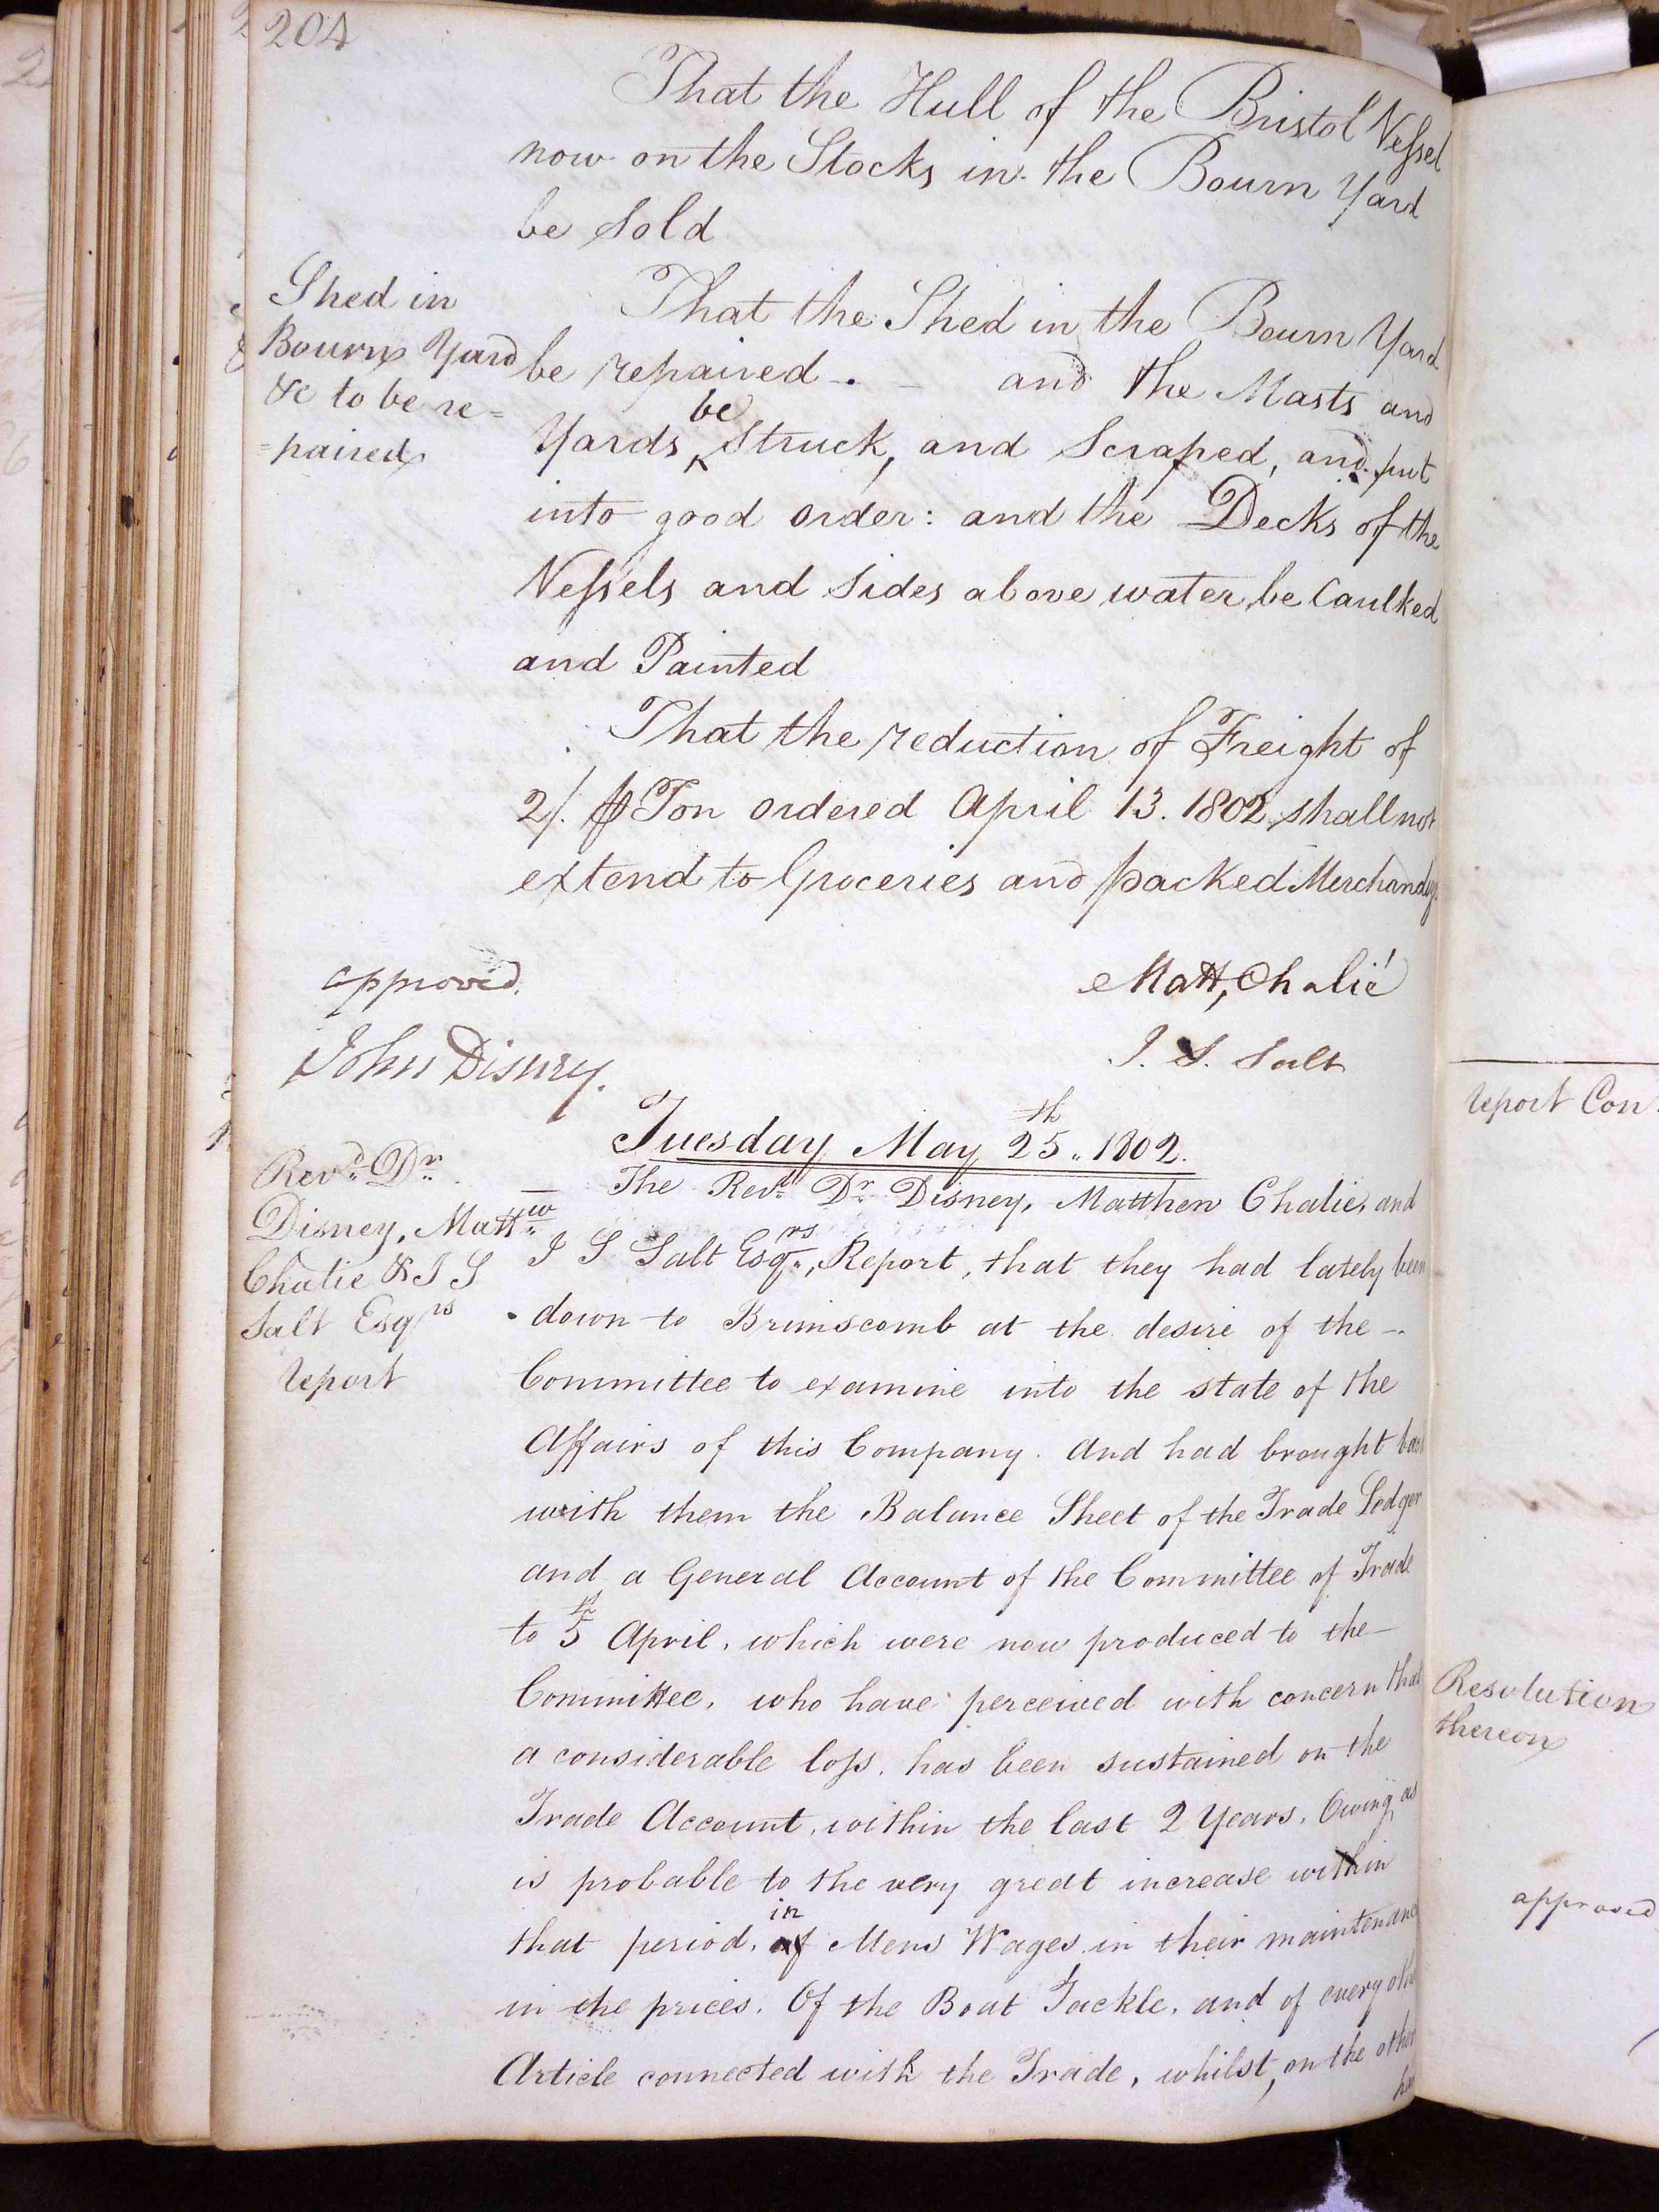 204
That the Hull of the Bristol Vessel
now on the Stocks in the Bourn Yard
be Sold
Shed in
Bourn Yard
&c to be re=
=paired
That the Shed in the Bourn Yard
be repaired -. - and the Masts and
be
Yards ^ Struck, and Scraped, and put
into good order: and the Decks of the
Vessels and Sides above water, be Caulked
and Painted
That the reduction of Freight of
2/. ⅌ Ton ordered April 13. 1802 shall not
extend to Groceries and packed Merchandize
approved.
John Disney.
Matt, Chalié
J. S. Salt
Tuesday May 25th. 1802.
Revd. Dr.
Disney, Mattw.
Chalie & J S
Salt Esqrs
report
The Revd. Dr. Disney, Matthew Chalie, and
J S Salt Esqrs., Report, that they had lately been
down to Brimscomb at the desire of the -.
Committee to examine into the state of the
Affairs of this Company. And had brought back
with them the Balance Sheet of the Trade Ledger
and a General Account of the Committee of Trade
to 5th April, which were now produced to the -
Committee, who have perceived with concern that
a considerable loss. has been sustained on the
Trade Account, within the last 2 Years. Owing, as
is probable to the very great increase within
in
that period. of Mens Wages in their maintenance
in the prices. Of the Boat Tackle, and of every other
Article connected with the Trade, whilst, on the other
report Con.
Resolution
thereon
approved